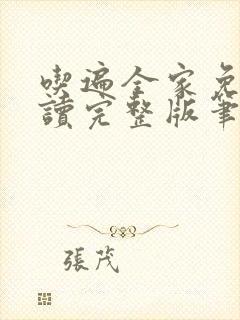 喫遍全家免
讀完整版筆
張茂